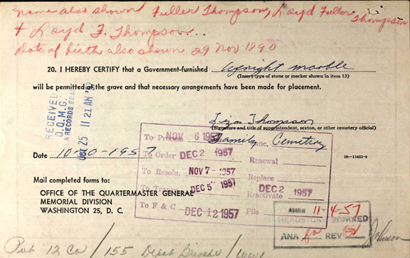 Name also shown Fuller Thompson, Loyd Fuller Thompson
& Loyd F. Thompson..
Date of birth also shown 29 Nov 1890
20. I HEREBY CERTIFY that a Government-furnished Upright marble
(Insert type of stone or marker shown in item 13)
will be permitted at the grave and that necessary arrangements have been made for placement.
RECEIVED
O.Q.M.G.
25 11 21 AM
Thompson
(Signature and title of superintendent, sexton, or other cemetery official)
Family Cemetery
Date 10-30-1957
16-11682-9
Mail completed forms to:
OFFICE OF THE QUARTERMASTER GENERAL
MEMORIAL DIVISION
WASHINGTON 25, D. C.
NOV 6 1957
To Order DEC 2 1957 Renewal
NOV 7 - 1957 Replace
DEC 5 1957 DEC 2 1957
Reactivate
To F & C DEC 12 1957 File
11-4-57
WORKED
ANA REV
Johnson
Pvt 12 Co / 155 Depot Brigade / WWI